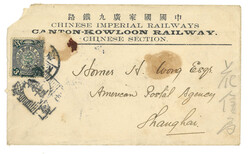 中國國家廣九鐵路
CHINESE IMPERIAL RAILWAYS
CANTON-KOWLOON RAILWAY.
CHINESE SECTION.
Homer H. Wong Esqr
American Postal Agency
Shanghai